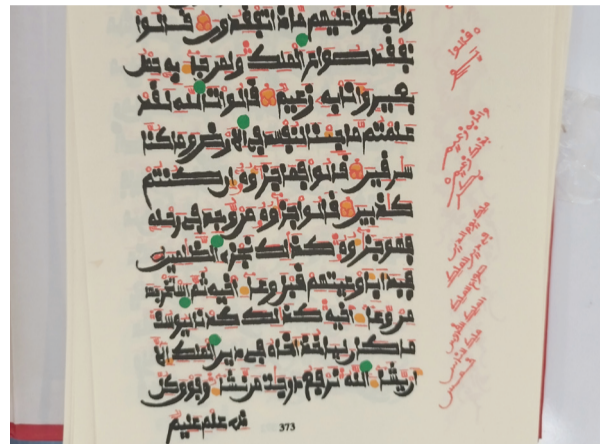 وأقبلوا عليهم ماذا تفقدون قالوا
نفقد صواع الملك ولمن جاء به حمل
بعير وأنا به زعيم قالوا تالله لقد
علمتم ما جئنا لنفسد في الارض وما كنا
سرقين قالوا فما جزؤه إن كنتم
كذبين قالوا جزؤه من وجد في رحله
فهو جزؤه كذلك نجزي الظلمين
فبدأ بأوعيتهم قبل وعاء أخيه ثم استخرجها
من وعاء أخيه كذلك كدنا ليوسف
ما كان لياخذ أخاه في دين الملك إلا
أن يشاء الله نرفع درجت من نشاء وفوق كل
ذي علم عليم
373
قالوا
وانا به زعيم
بذلك زعيم
ملك يوم الدين
في دين الملك
صواع الملك
الملك القدوس